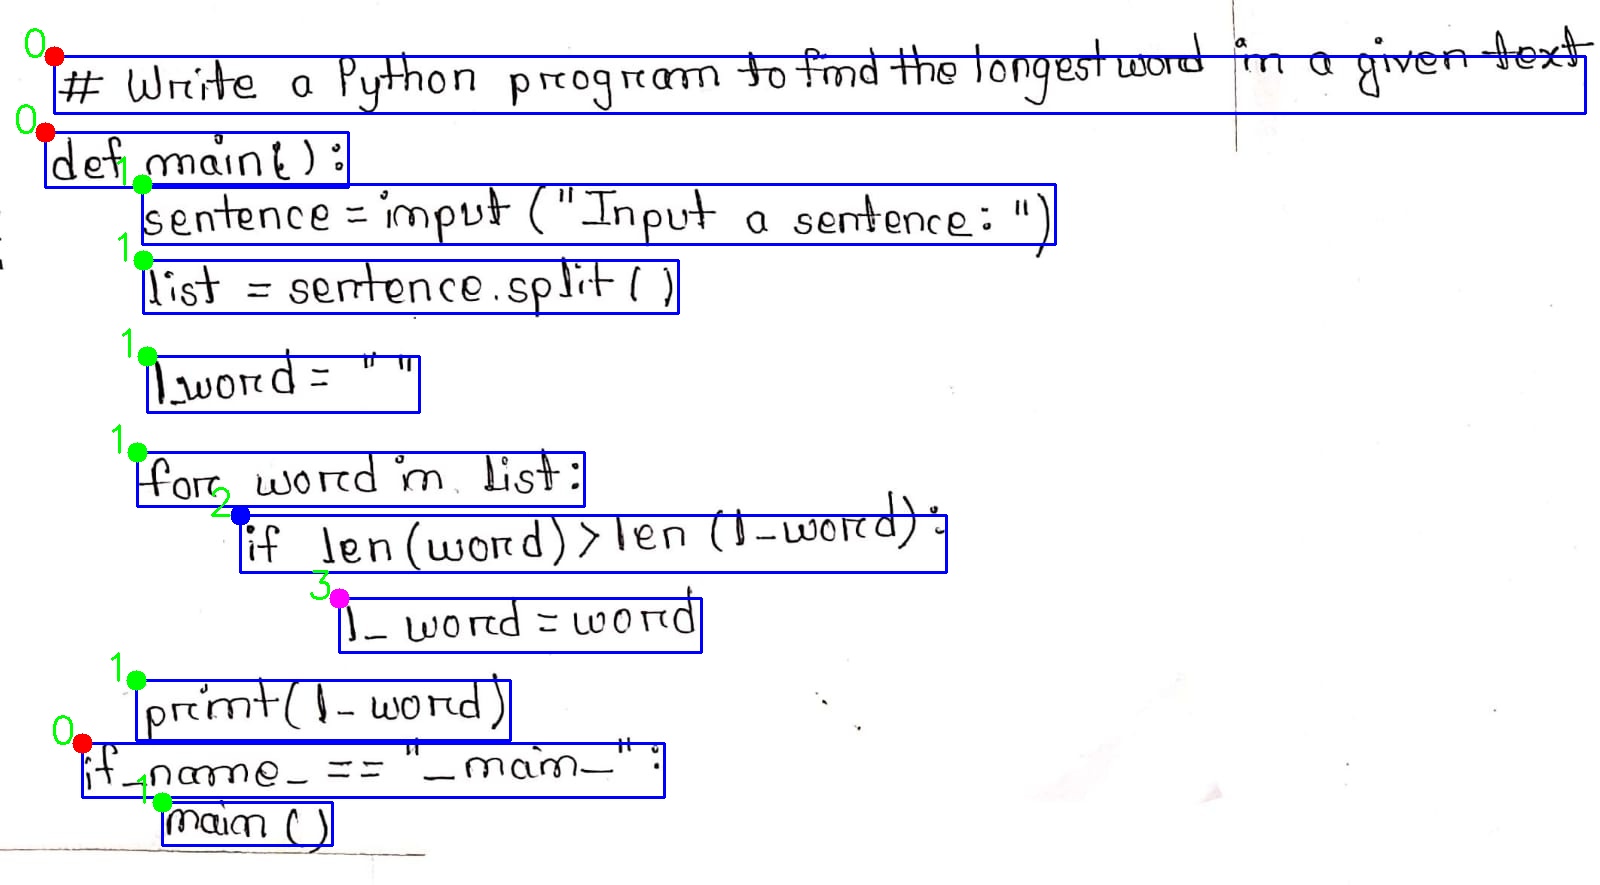 # Write a Python program to find the longest word in a given text
def main():
sentence = input ("Input a sentence: ")
list = sentence.split()
l_word = " "
for word in list:
if len(word) > len (l_word):
l_word = word
print(l_word)
if _name_ == "_main_":
main ()
0
0
1
1
1
1
2
3
1
0
1